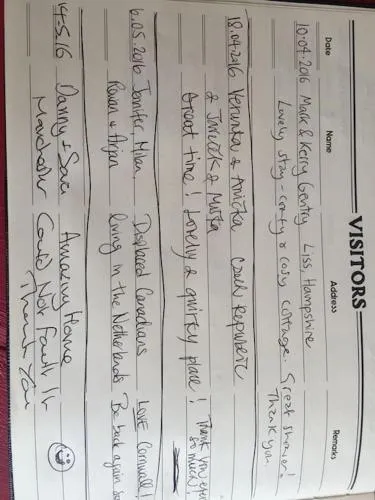 VISITORS
Date Name Address Remarks
10.04.2016 Mark & Kerry Gentry Liss, Hampshire
Lovely stay - comfy & cosy cottage. Great shower!
Thank you
18.04.2016 Verunka & Anička Czech Republic
& Jeníček & Míša
Great time! Lovely & quirky place! Thank you
so much!
6.05.2016 Jennifer, Milan Displaced Canadians Love Cornwall!
Rowan & Arjan living in the Netherlands Be back again
14-5/16 Danny & Amazing Home
Manchester Could Not fault it
Thank You